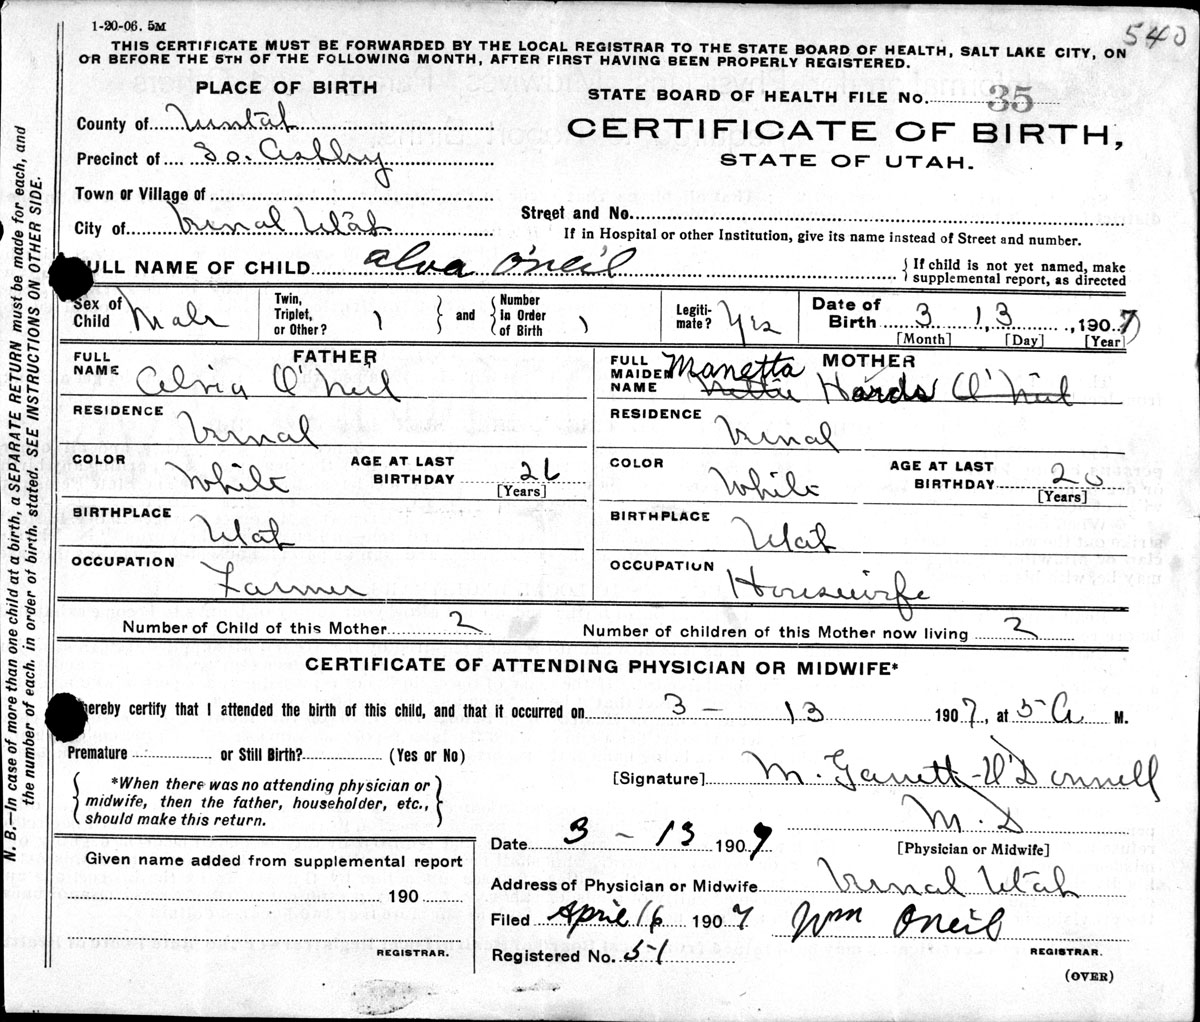 1-20-06. 5M
540
THIS CERTIFICATE MUST BE FORWARDED BY THE LOCAL REGISTRAR TO THE STATE BOARD OF HEALTH, SALT LAKE CITY, ON
OR BEFORE THE 5TH OF THE FOLLOWING MONTH, AFTER FIRST HAVING BEEN PROPERLY REGISTERED.
PLACE OF BIRTH
STATE BOARD OF HEALTH FILE No. 35
County of Uintah
CERTIFICATE OF BIRTH,
Precinct of So. Ashley
STATE OF UTAH.
Town or Village of
City of Vernal Utah
Street and No.
If in Hospital or other Institution, give its name instead of Street and number.
FULL NAME OF CHILD Alva O'neil
{ If child is not yet named, make
supplemental report, as directed
Sex of Child Male
Twin, Triplet, or Other? 1 } and { Number In Order of Birth 1
Legiti-mate? Yes
Date of Birth 3 13, 1907
[Month] [Day] [Year]
FATHER
FULL NAME O'Neil
RESIDENCE Vernal
COLOR White AGE AT LAST BIRTHDAY 26
[Years]
BIRTHPLACE Utah
OCCUPATION Farmer
MOTHER
FULL MAIDEN NAME Manetta Nettie O'Neil
RESIDENCE Vernal
COLOR White AGE AT LAST BIRTHDAY 20
[Years]
BIRTHPLACE Utah
OCCUPATION Housewife
Number of Child of this Mother 2 Number of children of this Mother now living 2
CERTIFICATE OF ATTENDING PHYSICIAN OR MIDWIFE*
hereby certify that I attended the birth of this child, and that it occurred on 3 - 13 1907, at 5 A M.
Premature or Still Birth? (Yes or No)
{ *When there was no attending physician or
midwife, then the father, householder, etc., }
should make this return.
[Signature] M. Garrett-O'Donnell
M.D
[Physician or Midwife]
Date 3 - 13 1907
Address of Physician or Midwife Vernal Utah
Filed April 16 1907 Wm Oneil
REGISTRAR.
Registered No. 51
(OVER)
Given name added from supplemental report
190
REGISTRAR.
N. B.—In case of more than one child at a birth, a SEPARATE RETURN must be made for each, and
the number of each, in order of birth, stated. SEE INSTRUCTIONS ON OTHER SIDE.